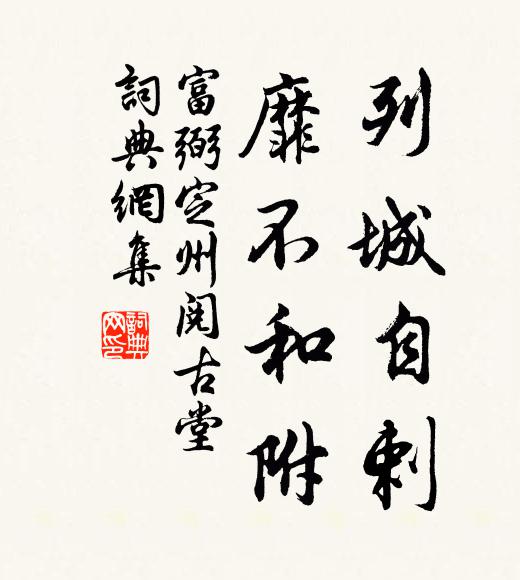 列城自刺
靡不和附
富弼定州閱古堂
詞典網集
詞典
网印